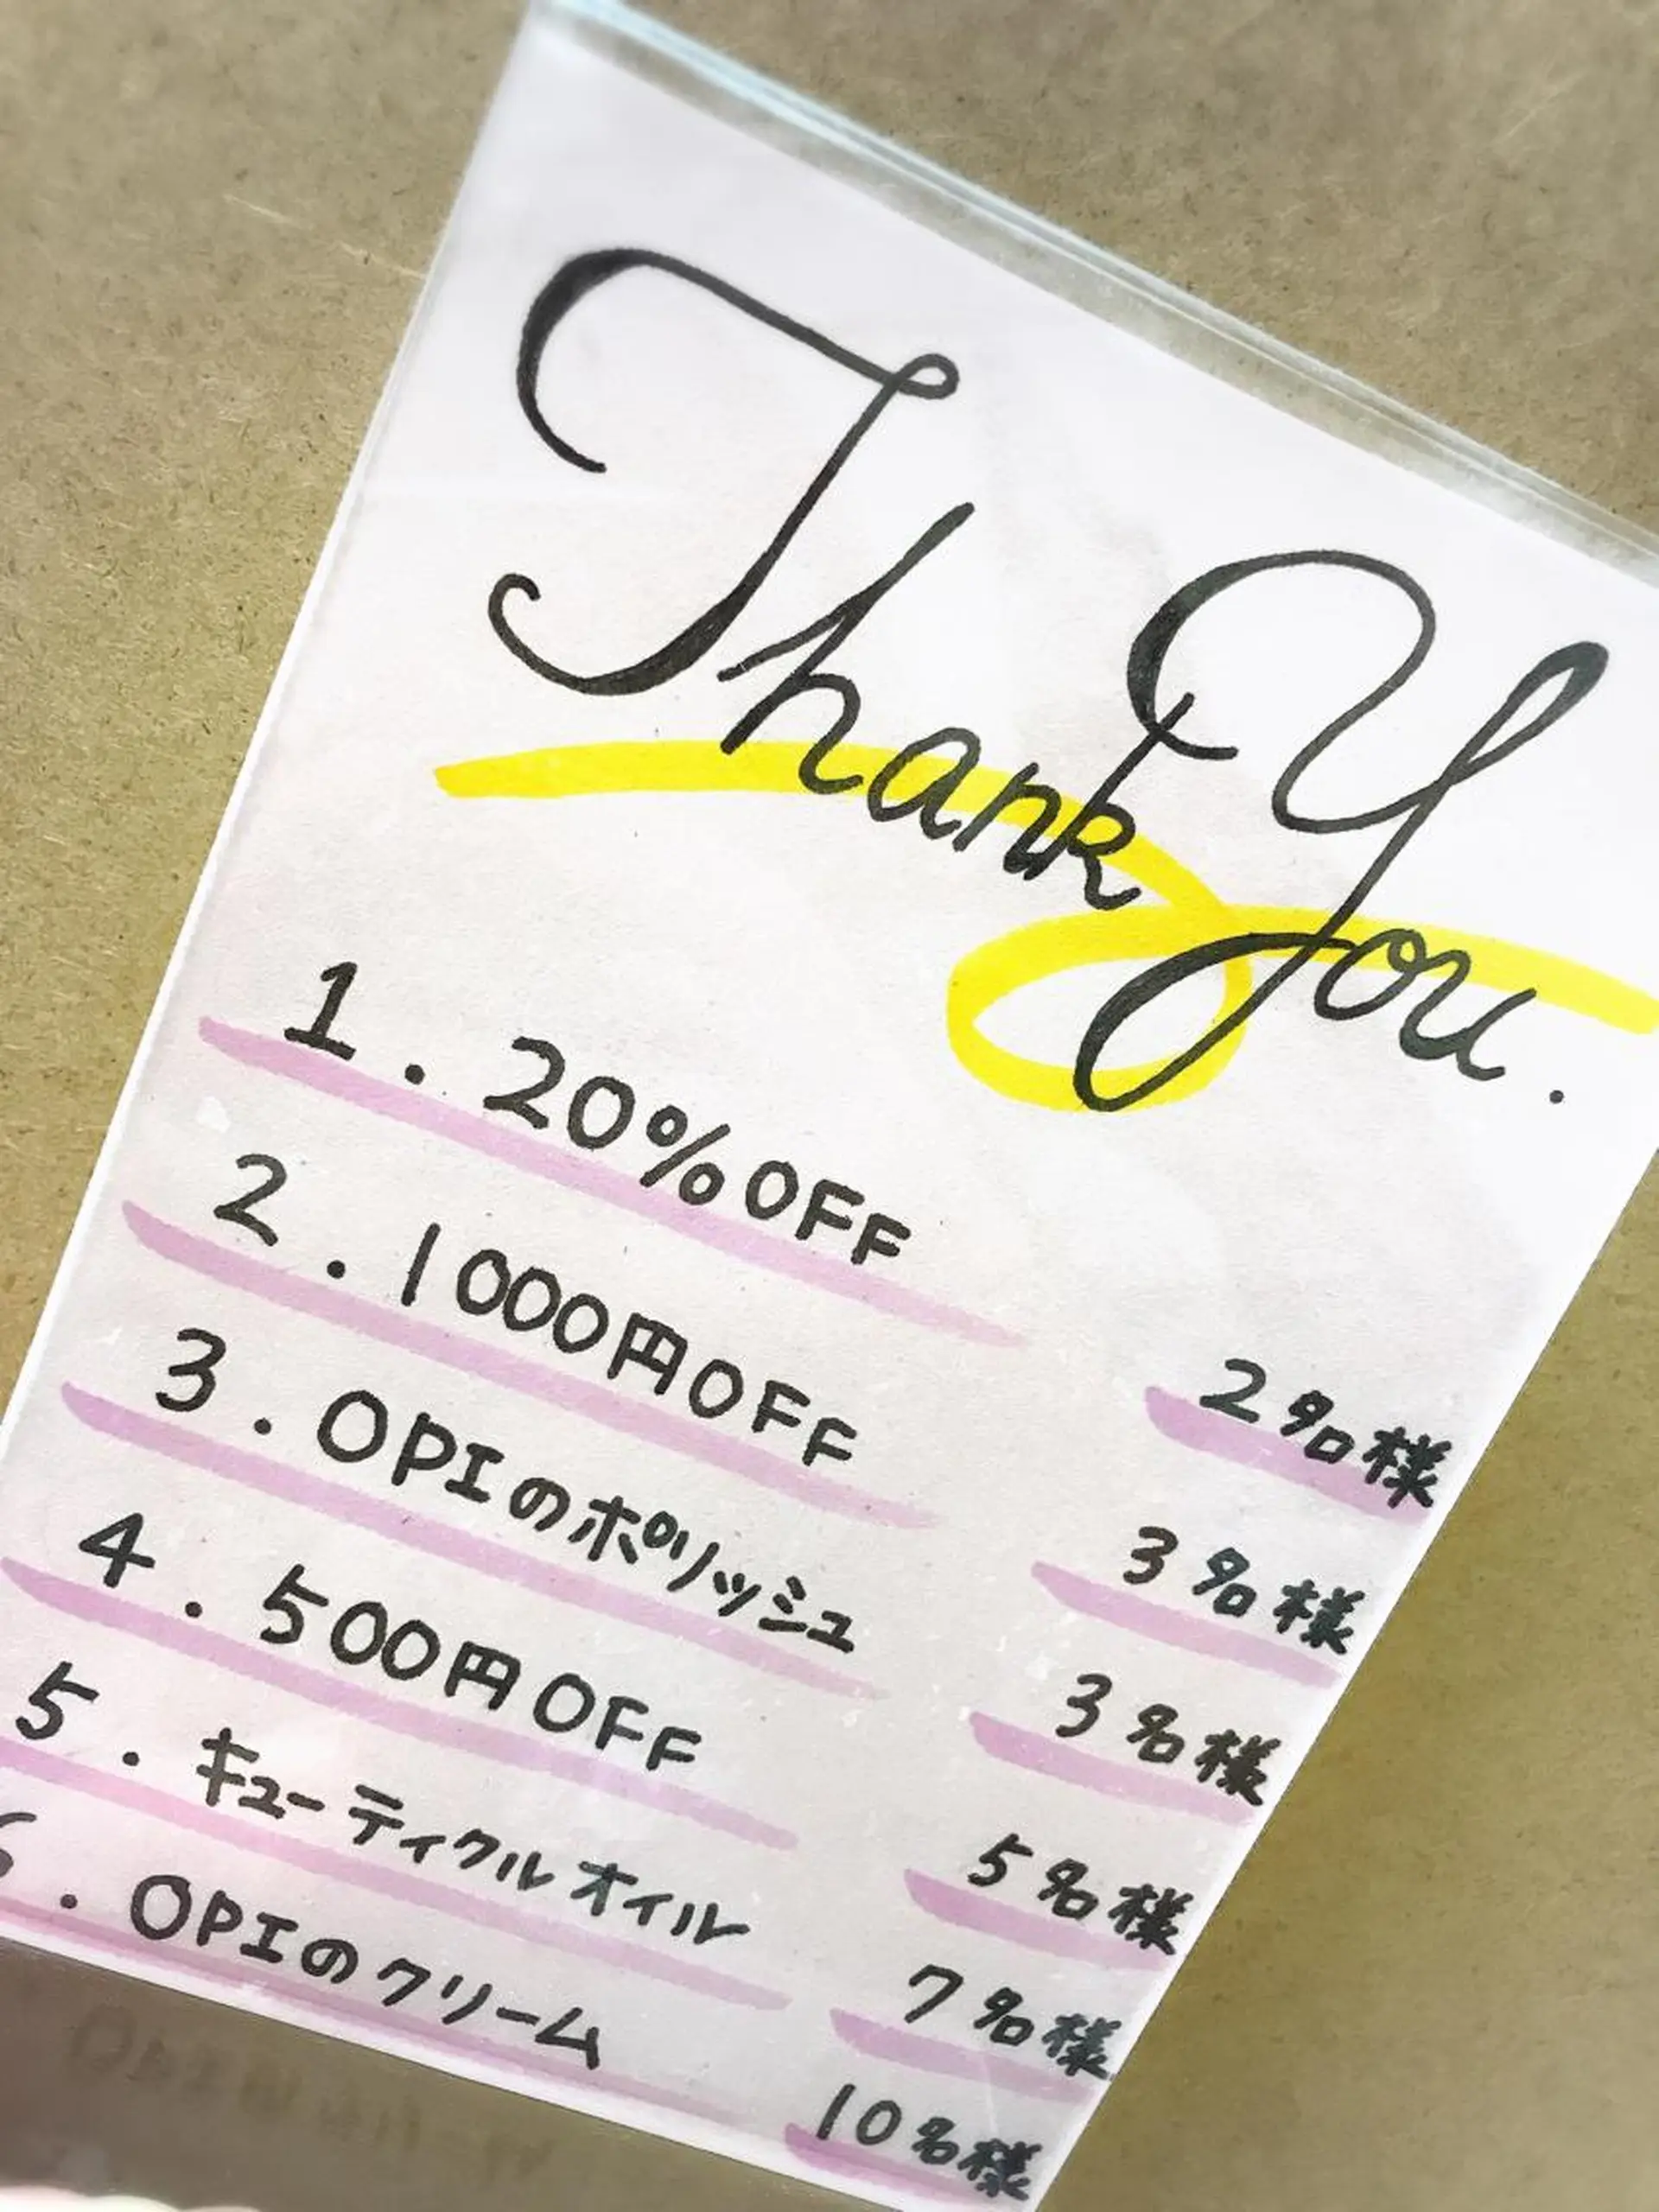 Thank You.
1. 20%OFF 2名様
2. 1000円OFF 3名様
3. OPIのポリッシュ 3名様
4. 500円OFF 5名様
5. キューティクルオイル 7名様
6. OPIのクリーム 10名様